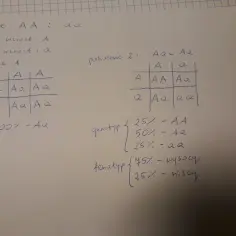 AA ; aa
A A
Aa Aa
Aa Aa
00% - Aa
2: Aa x Aa
A a
A AA Aa
a Aa aa
genotyp 25% - AA
50% - Aa
25% - aa
fenotyp 75% - wysocy
25% - niscy